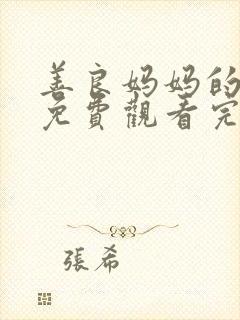 善良妈妈的
免費觀看完
張希